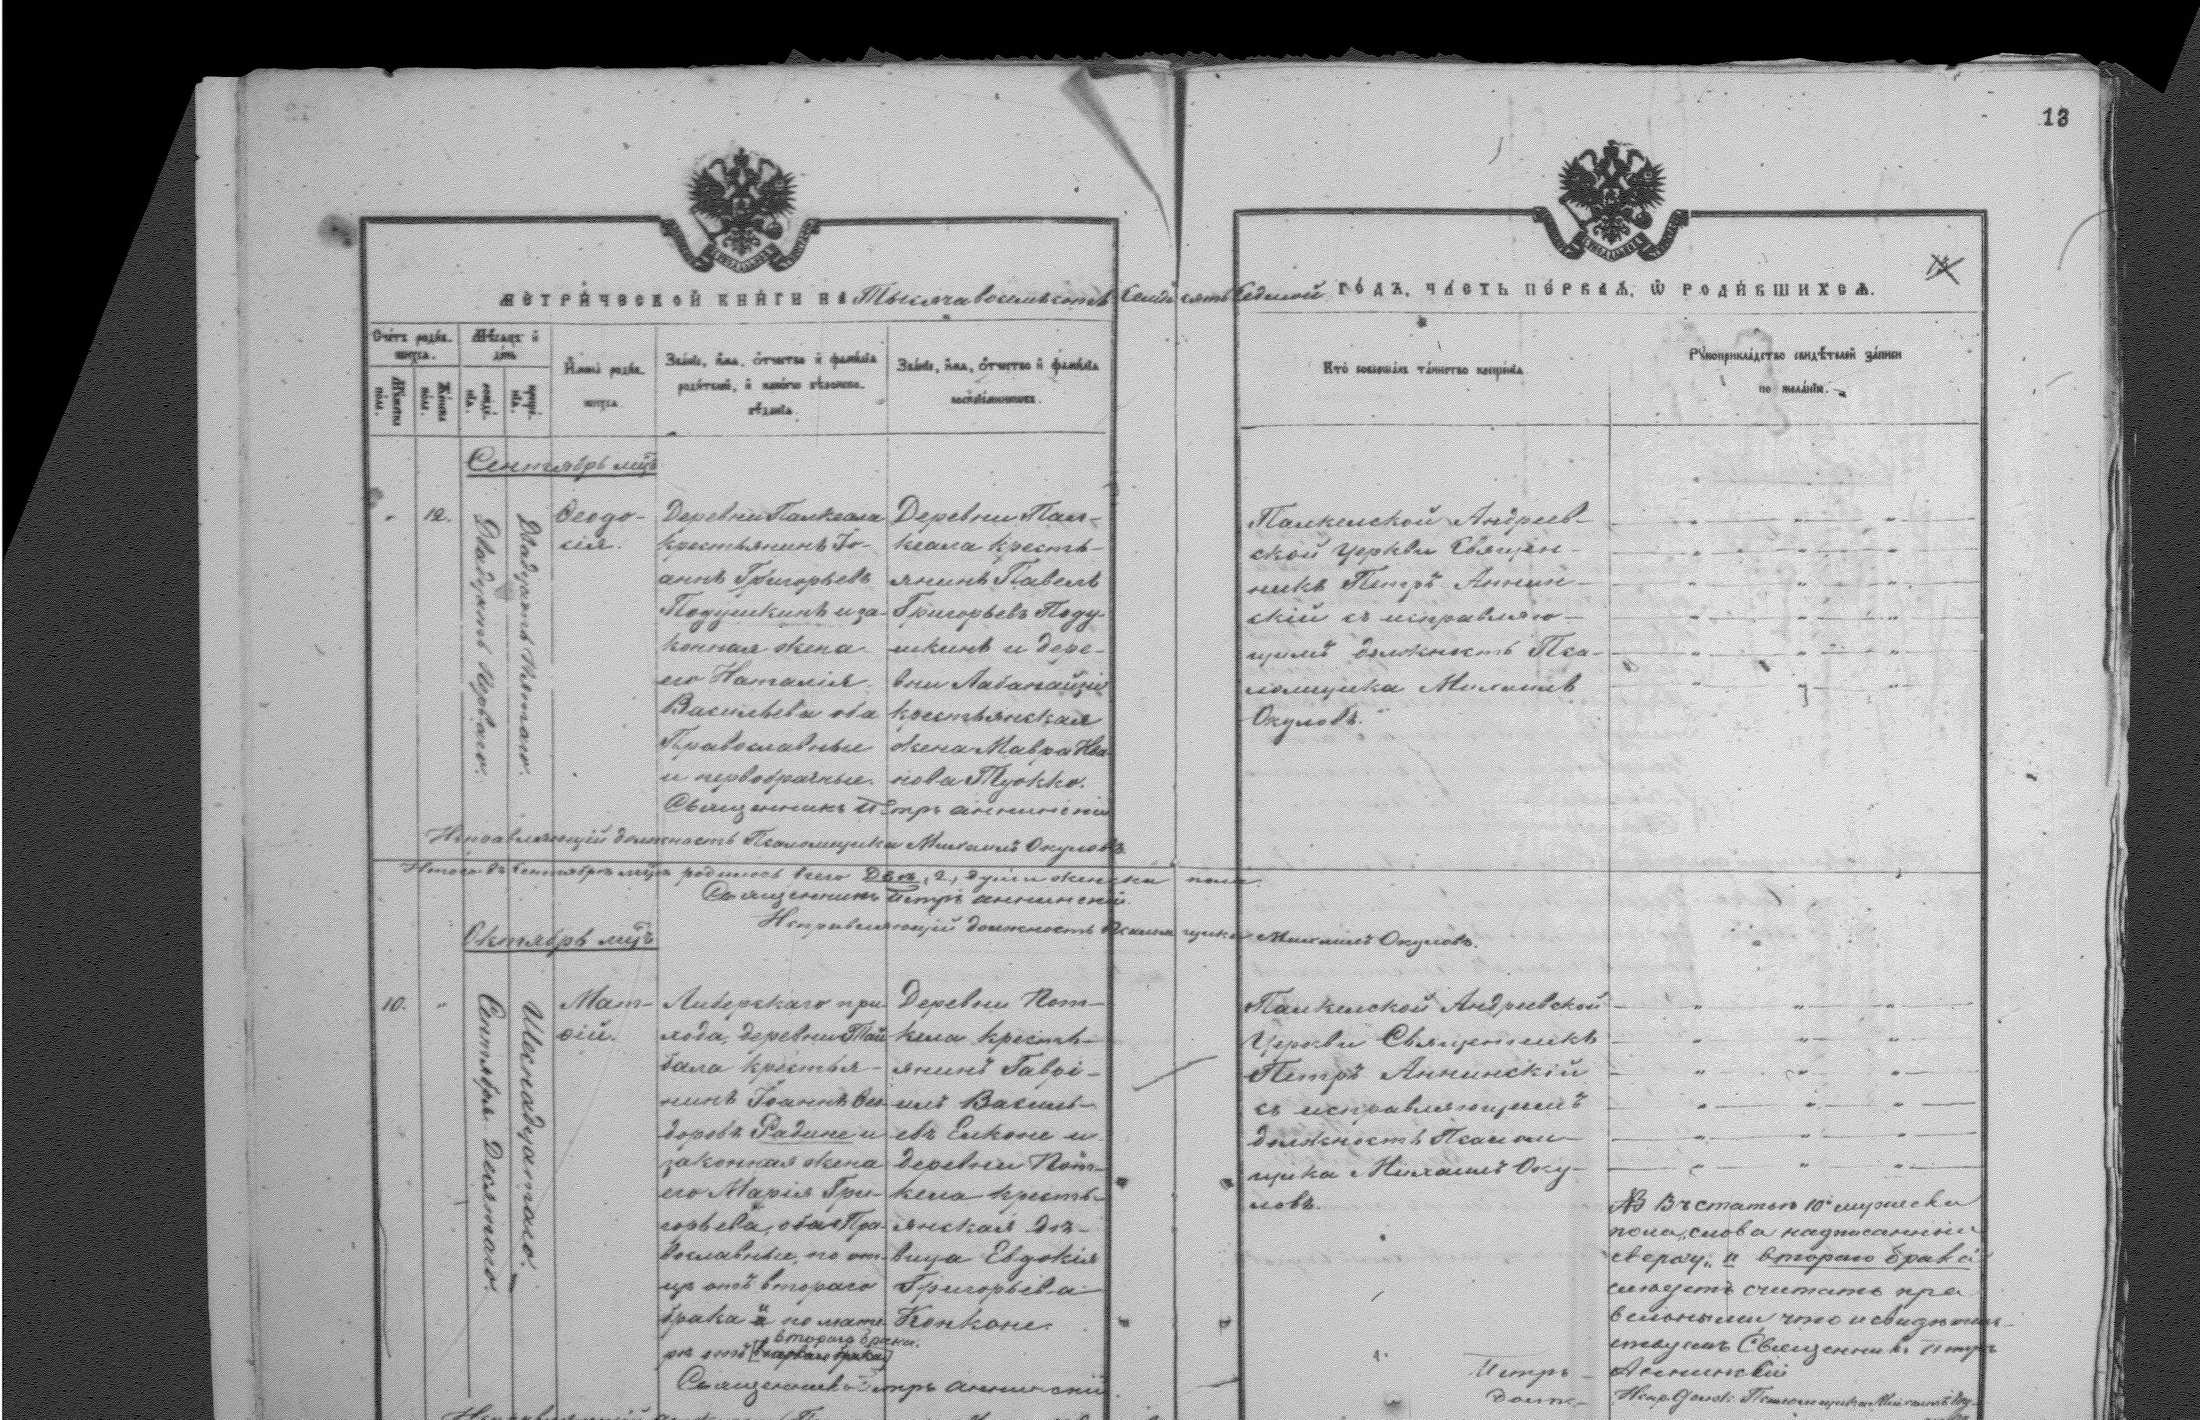 13
МЕТРИЧЕСКОЙ КНИГИ НА Тысяча восемьсотъ Семдесятъ Седмой ГОДЪ, ЧАСТЬ ПЕРВАЯ, Ѡ РОДИВШИХСЯ.
Счетъ родив-
шихся.
Мужеска
пола.
Женска
пола.
Мѣсяцъ и
день
рожде-
нія.
креще-
нія.
Имена родив-
шихся
Званіе, имя, отчество и фамилія
родителей, и какого вѣроиспо-
вѣданія
Званіе, имя, отчество и фамилія
воспріемниковъ.
Кто совершалъ таинство крещенія
Рукоприкладство свидѣтелей записи
по желанію.
Сентябрь мцъ
12.
Двадцать перваго.
Двадцать пятаго.
Ѳеодо-
сія.
Деревни Палкеала
крестьянинъ Іо-
аннъ Григорьевъ
Подушкинъ и за-
конная жена
его Наталія
Васильева оба
Православные
и первобрачные.
Деревни Пал-
кеала кресть-
янинъ Павелъ
Григорьевъ Поду-
шкинъ и дере-
вни
крестьянская
жена Мавра Ива
нова Туокко.
Священникъ Петръ Аннинскій
Исправляющій должность Псаломщика Михаилъ Окуловъ.
Палкельской Андреев-
ской церкви Священ-
никъ Петръ Аннин-
скій съ исправляю-
щимъ должность Пса-
ломщика Михаилъ
Окуловъ.
Итого въ Сентябрѣ мцѣ родилось всего Двѣ, 2, души женска пола.
Священникъ Петръ Аннинскій.
Исправляющій должность Псаломщика Михаилъ Окуловъ.
Октябрь мцъ
10.
Сентября Десятаго.
Шеснадцатаго.
Мат-
ѳій.
Либерскаго при
хода, деревни Тай
бала крестья-
нинъ Іоаннъ Ѳео
доровъ Радине и
законная жена
его Марія Гри-
горьева, оба Пра-
вославные, по от-
цѣ отъ втораго
брака и по мате-
втораго брака.
рѣ отъ [перваго брака]
Деревни Пот-
кела кресть-
янинъ Гаврі-
илъ Василь-
евъ Елконе и
деревни Пот-
кела кресть-
янская дѣ-
вица Евдокія
Григорьева
Конконе.
Священникъ Петръ Аннинскій
Палкельской Андреевской
Церкви Священникъ
Петръ Аннинскій
съ исправляющимъ
должность Псалом-
щика Михаилъ Оку-
ловъ.
NB Въ статьѣ 10й мужеска
пола, слова надписанныя
сверху: "и втораго брака"
слѣдуетъ считать пра
вельными что и свидѣтель-
ствуемъ Священникъ Петръ
Аннинскій
Петръ
долж-
Испр. долж. Псаломщика Михаилъ Оку-